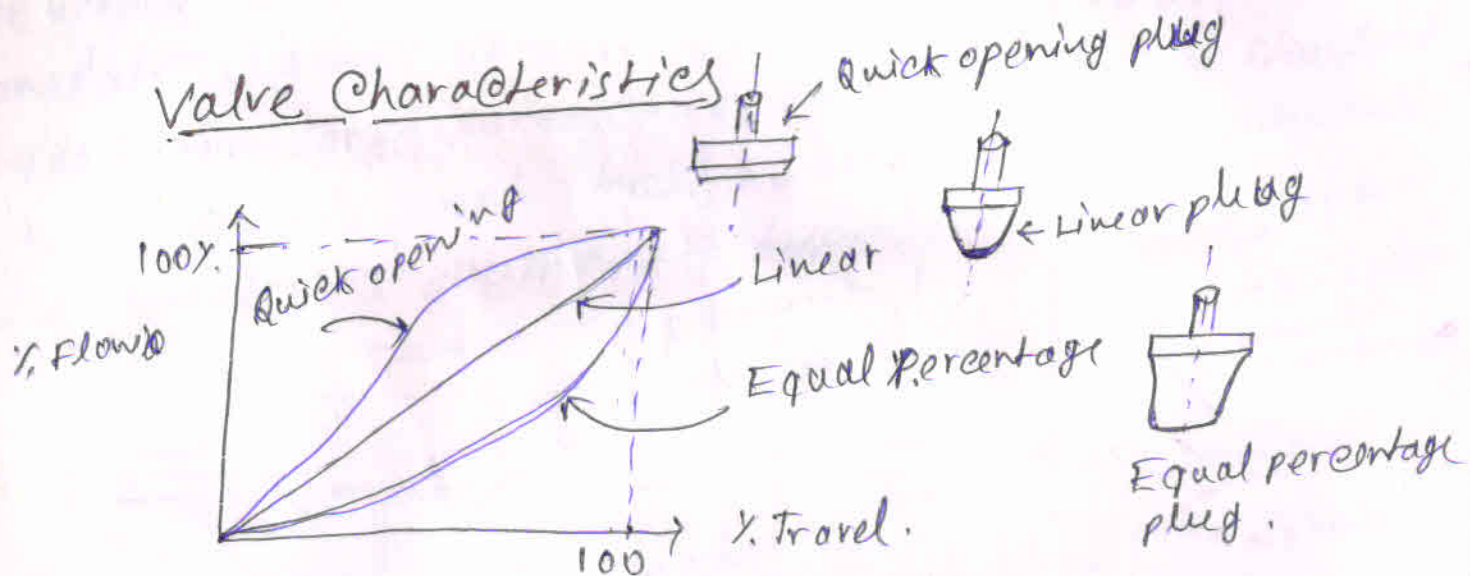 Valve Characteristics
Quick opening plug
Linear plug
100%
Quick opening
Linear
% Flow
Equal Percentage
Equal percentage
plug.
100
% Travel.